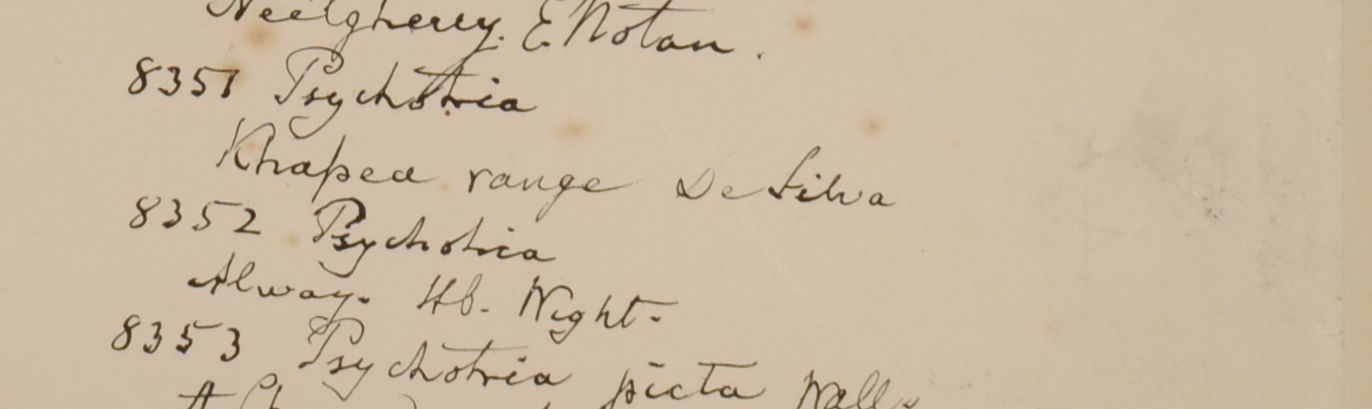 Neelgherry. E Notan.
8351 Psychotria
Khapea range De Silva
8352 Psychotria
Alway. Hb. Wight.
8353 Psychotria picta Wall.